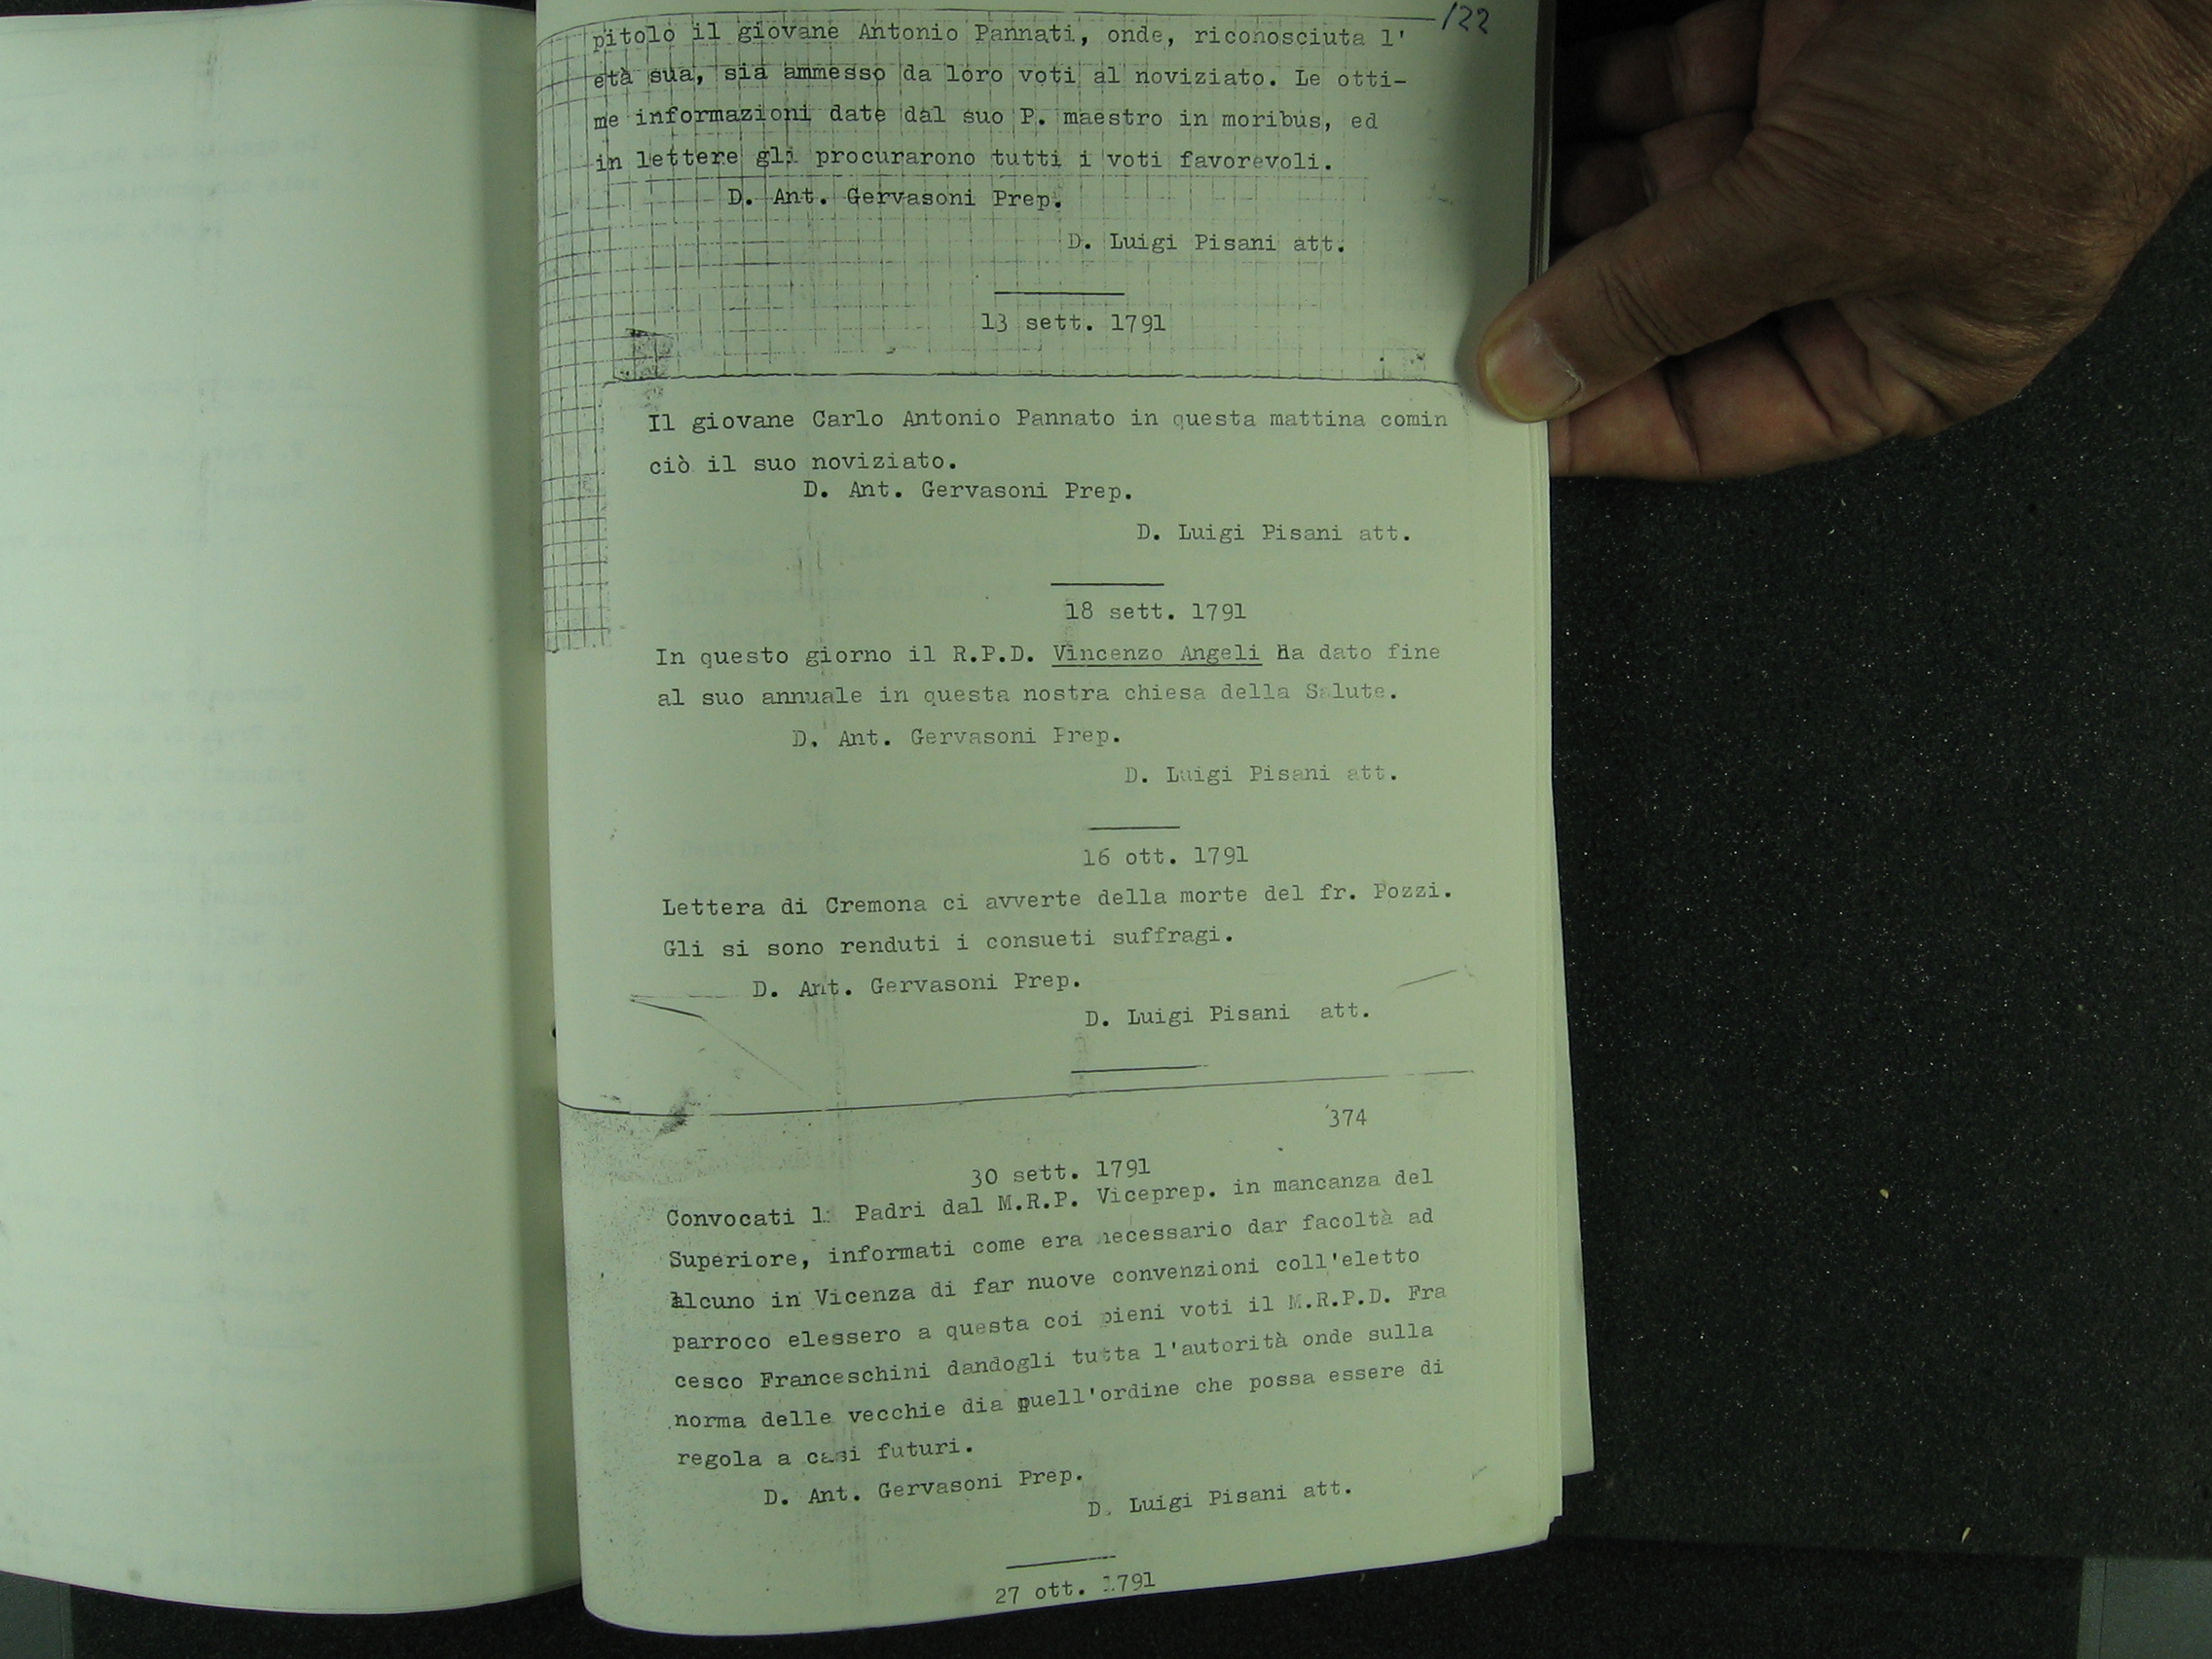 122
pitolo il giovane Antonio Pannati, onde, riconosciuta l'
età sua, sia ammesso da loro voti al noviziato. Le otti-
me informazioni date dal suo P. maestro in moribus, ed
in lettere gli procurarono tutti i voti favorevoli.
D. Ant. Gervasoni Prep.
D. Luigi Pisani att.
13 sett. 1791
Il giovane Carlo Antonio Pannato in questa mattina comin
ciò il suo noviziato.
D. Ant. Gervasoni Prep.
D. Luigi Pisani att.
18 sett. 1791
In questo giorno il R.P.D. Vincenzo Angeli ha dato fine
al suo annuale in questa nostra chiesa della Salute.
D. Ant. Gervasoni Prep.
D. Luigi Pisani att.
16 ott. 1791
Lettera di Cremona ci avverte della morte del fr. Pozzi.
Gli si sono renduti i consueti suffragi.
D. Ant. Gervasoni Prep.
D. Luigi Pisani att.
374
30 sett. 1791
Convocati i Padri dal M.R.P. Viceprep. in mancanza del
Superiore, informati come era necessario dar facoltà ad
alcuno in Vicenza di far nuove convenzioni coll'eletto
parroco elessero a questa coi pieni voti il M.R.P.D. Fra
cesco Franceschini dandogli tutta l'autorità onde sulla
norma delle vecchie dia quell'ordine che possa essere di
regola a casi futuri.
D. Ant. Gervasoni Prep.
D. Luigi Pisani att.
27 ott. 1791